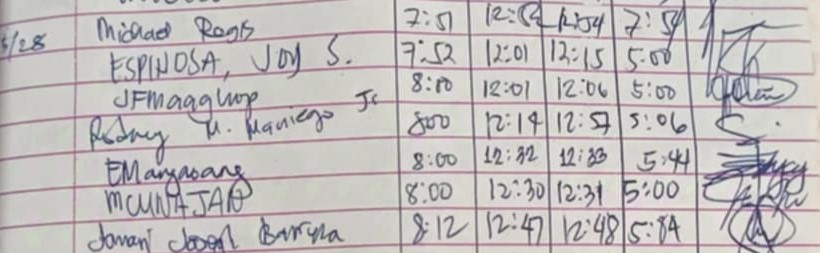 Michael Regis 7:51 12:52 12:54 7:54
5/28 ESPINOSA, JOY S. 7:52 12:01 12:15 5:00
JFMaggluop 8:00 12:01 12:06 5:00
Rodney M. Maniego Jr 800 12:14 12:57 5:06
EManyasang 8:00 12:32 12:33 5:44
MCUNAJAO 8:00 12:30 12:31 5:00
Joseph 8:12 12:47 12:48 5:04